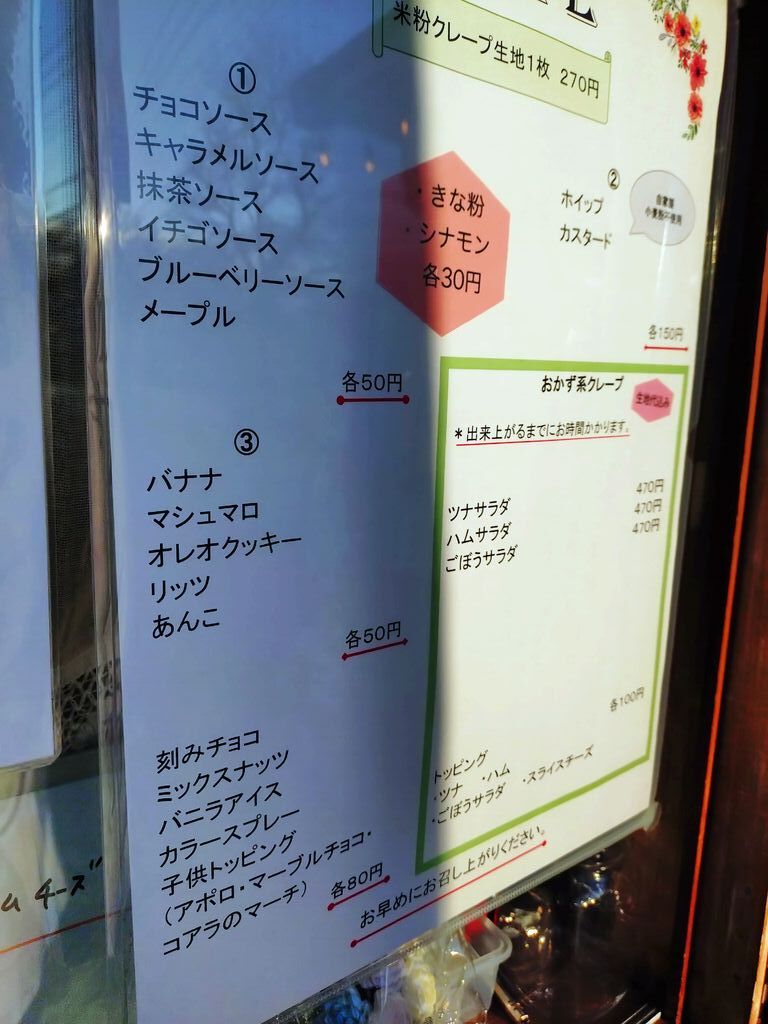 米粉クレープ生地1枚 270円
①
チョコソース
キャラメルソース
抹茶ソース
イチゴソース
ブルーベリーソース
メープル
各50円
・きな粉
・シナモン
各30円
②
ホイップ
カスタード
自家製
小麦粉不使用
各150円
③
バナナ
マシュマロ
オレオクッキー
リッツ
あんこ
各50円
刻みチョコ
ミックスナッツ
バニラアイス
カラースプレー
子供トッピング
（アポロ・マーブルチョコ・
コアラのマーチ）
各80円
おかず系クレープ
生地代込み
＊出来上がるまでにお時間かかります。
ツナサラダ 470円
ハムサラダ 470円
ごぼうサラダ 470円
各100円
トッピング
・ツナ ・ハム ・スライスチーズ
・ごぼうサラダ
お早めにお召し上がりください。